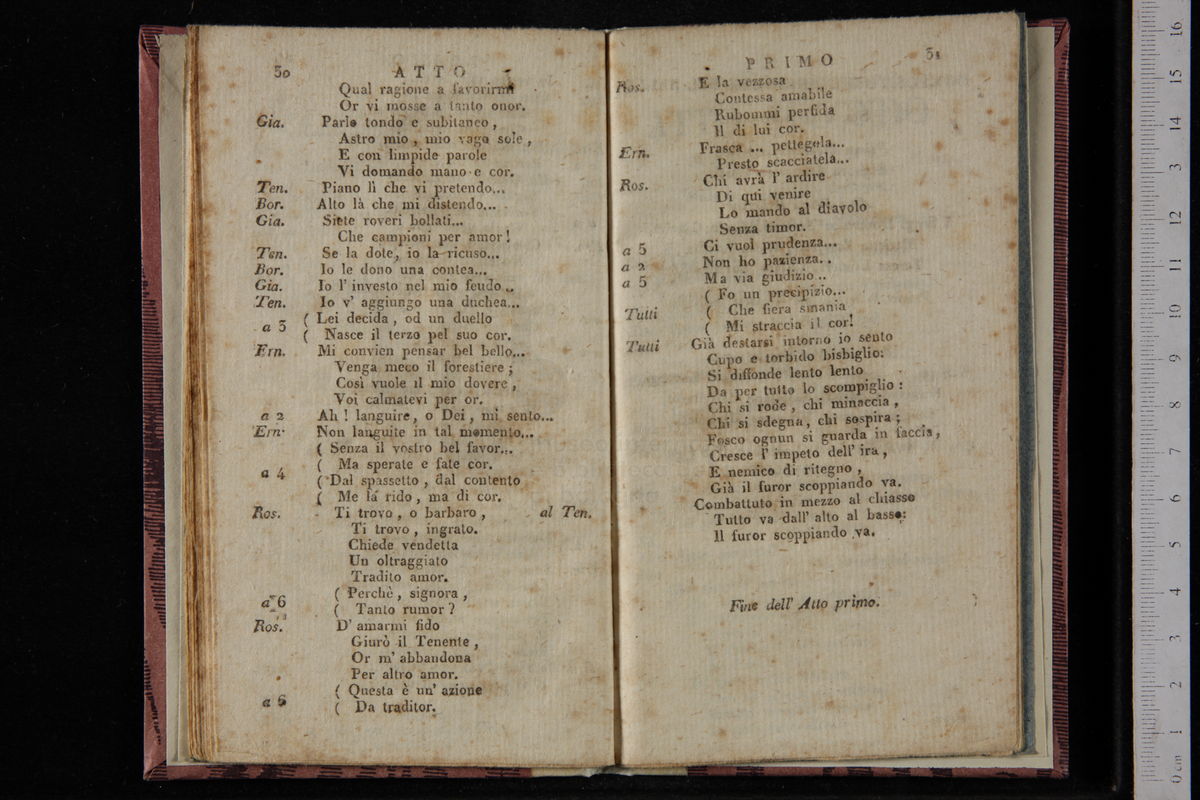 30 ATTO
Qual ragione a favorirmi
Or vi mosse a tanto onor.
Gia. Parlo tondo e subitaneo,
Astro mio, mio vago sole,
E con limpide parole
Vi domando mano e cor.
Ten. Piano lì che vi pretendo...
Bor. Alto là che mi distendo...
Gia. Siete roveri bollati...
Che campioni per amor!
Ten. Se la dote, io la ricuso...
Bor. Io le dono una contea...
Gia. Io l' investo nel mio feudo..
Ten. Io v' aggiungo una duchea...
a 3 ( Lei decida, od un duello
( Nasce il terzo pel suo cor.
Ern. Mi convien pensar bel bello...
Venga meco il forestiere;
Così vuole il mio dovere,
Voi calmatevi per or.
a 2 Ah! languire, o Dei, mi sento...
Ern. Non languite in tal momento...
( Senza il vostro bel favor...
( Ma sperate e fate cor.
a 4 ( Dal spassetto, dal contento
( Me la rido, ma di cor.
Ros. Ti trovo, o barbaro, al Ten.
Ti trovo, ingrato.
Chiede vendetta
Un oltraggiato
Tradito amor.
( Perchè, signora,
a 6 ( Tanto rumor?
Ros. D' amarmi fido
Giurò il Tenente,
Or m' abbandona
Per altro amor.
( Questa è un' azione
a 6 ( Da traditor.
PRIMO 31
Ros. E la vezzosa
Contessa amabile
Rubommi perfida
Il di lui cor.
Ern. Frasca ... pettegola...
Presto scacciatela...
Ros. Chi avrà l' ardire
Di qui venire
Lo mando al diavolo
Senza timor.
a 5 Ci vuol prudenza...
a 2 Non ho pazienza..
a 5 Ma via giudizio..
( Fo un precipizio...
Tutti ( Che fiera smania
( Mi straccia il cor!
Tutti Già destarsi intorno io sento
Cupo e torbido bisbiglio:
Si diffonde lento lento
Da per tutto lo scompiglio:
Chi si rode, chi minaccia,
Chi si sdegna, chi sospira;
Fosco ognun si guarda in faccia,
Cresce l' impeto dell' ira,
E nemico di ritegno,
Già il furor scoppiando va.
Combattuto in mezzo al chiasso
Tutto va dall' alto al basso:
Il furor scoppiando va.
Fine dell' Atto primo.
0 cm 1 2 3 4 5 6 7 8 9 10 11 12 13 14 15 16